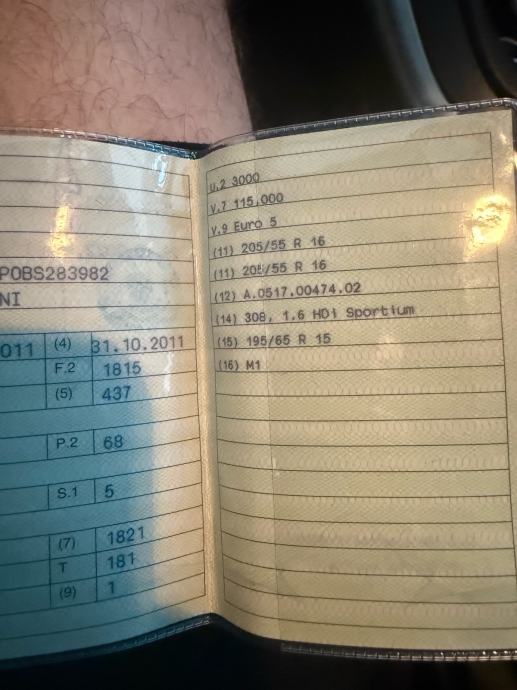 POBS283982
NI
011 (4) 31.10.2011
F.2 1815
(5) 437
P.2 68
S.1 5
(7) 1821
T 181
(9) 1
U.2 3000
V.7 115,000
V.9 Euro 5
(11) 205/55 R 16
(11) 205/55 R 16
(12) A.0517.00474.02
(14) 308, 1.6 HDi Sportium
(15) 195/65 R 15
(16) M1